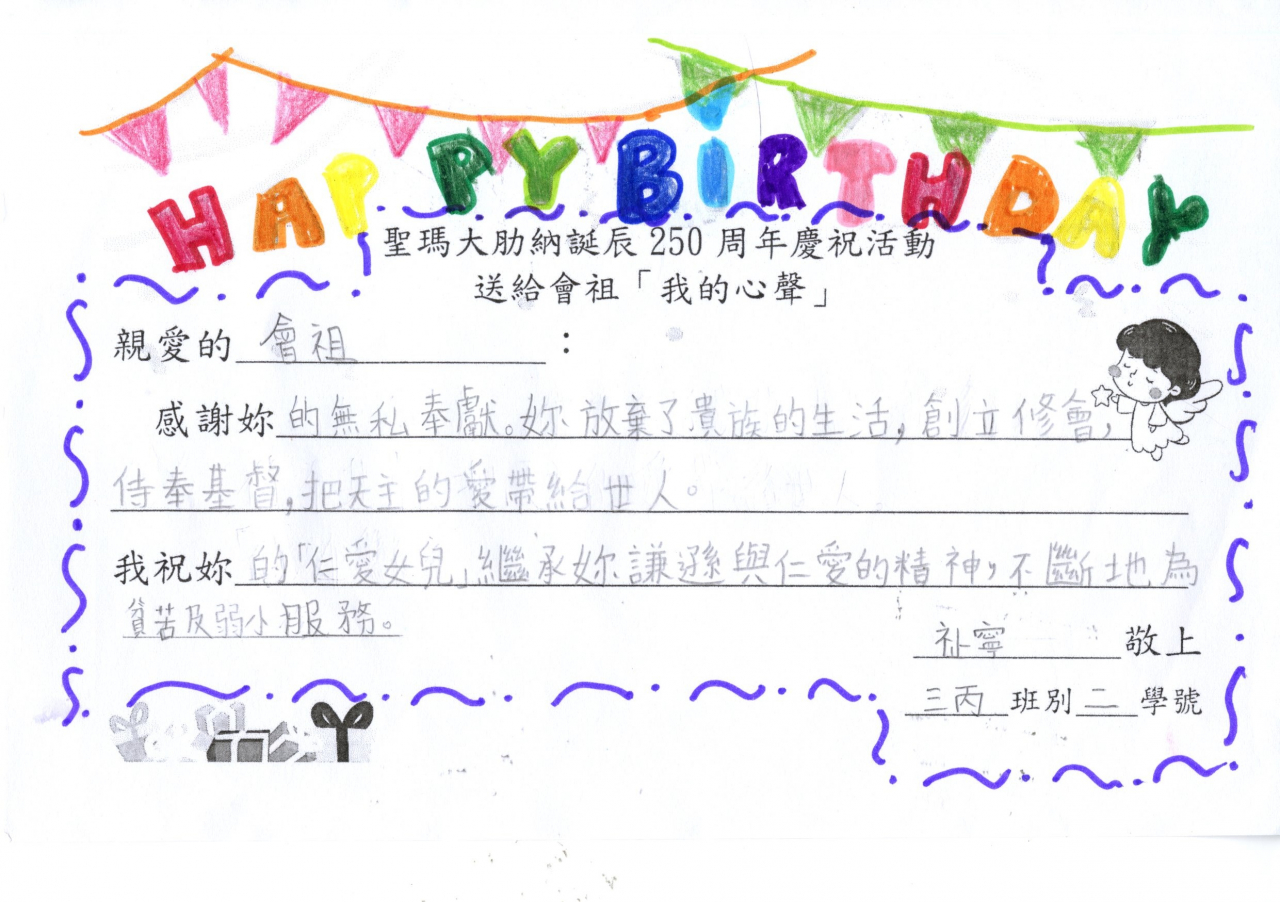 HAPPY BIRTHDAY
聖瑪大肋納誕辰 250 周年慶祝活動
送給會祖「我的心聲」
親愛的 會祖 :
感謝妳 的無私奉獻。妳放棄了貴族的生活,創立修會,
侍奉基督,把天主的愛帶給世人。
我祝妳 的「仁愛女兒」繼承妳謙遜與仁愛的精神,不斷地為
貧苦及弱小服務。
祉寧 敬上
三丙 班別 二 學號